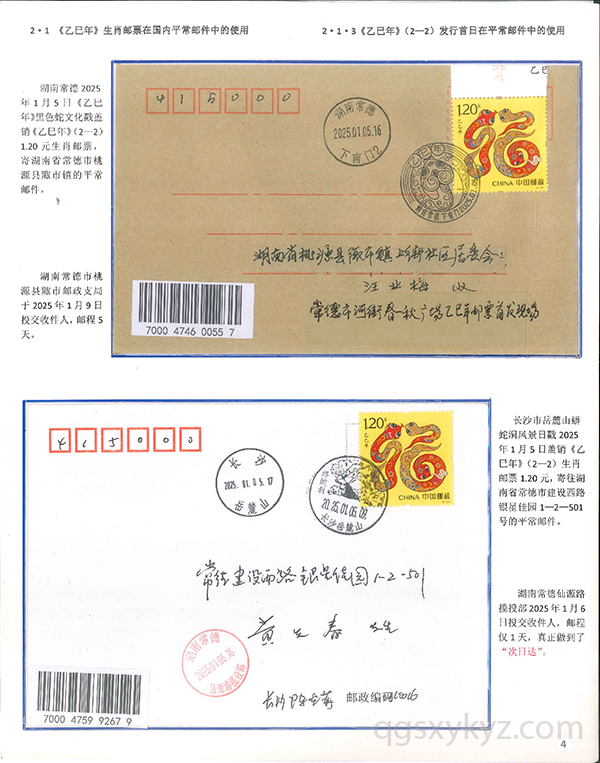 2·1 《乙巳年》生肖邮票在国内平常邮件中的使用
2·1·3《乙巳年》（2—2）发行首日在平常邮件中的使用
湖南常德 2025
年 1 月 5 日《乙巳
年》黑色蛇文化戳盖
销《乙巳年》（2—2）
1.20 元生肖邮票，
寄湖南省常德市桃
源县陬市镇的平常
邮件。
湖南常德市桃
源县陬市邮政支局
于 2025 年 1 月 9 日
投交收件人，邮程 5
天。
乙巳
415000
湖南常德
2025.01.05.16
下南门2
1.20元
乙巳年
CHINA 中国邮政
乙巳年
湖南常德下南门2025.01.05
湖南省桃源县陬市镇 社区居委会：
汪业梅 收
常德市河街春秋广场乙巳年邮票首发现场
7000 4746 0055 7
长沙市岳麓山蟒
蛇洞风景日戳 2025
年 1 月 5 日盖销《乙
巳年》（2—2）生肖
邮票 1.20 元，寄往湖
南省常德市建设西路
银星佳园 1—2—501
号的平常邮件。
湖南常德仙源路
揽投部 2025 年 1 月 6
日投交收件人，邮程
仅 1 天，真正做到了
“次日达”。
415000
长沙
2025.01.05.17
岳麓山
2025.01.05.09
长沙岳麓山
1.20元
乙巳年
CHINA 中国邮政
常德建设西路银星佳园1-2-501
黄 春 先生
湖南常德
2025.01.06.16
长沙 邮政编码
7000 4759 9267 9
qgsxykyz.com
4